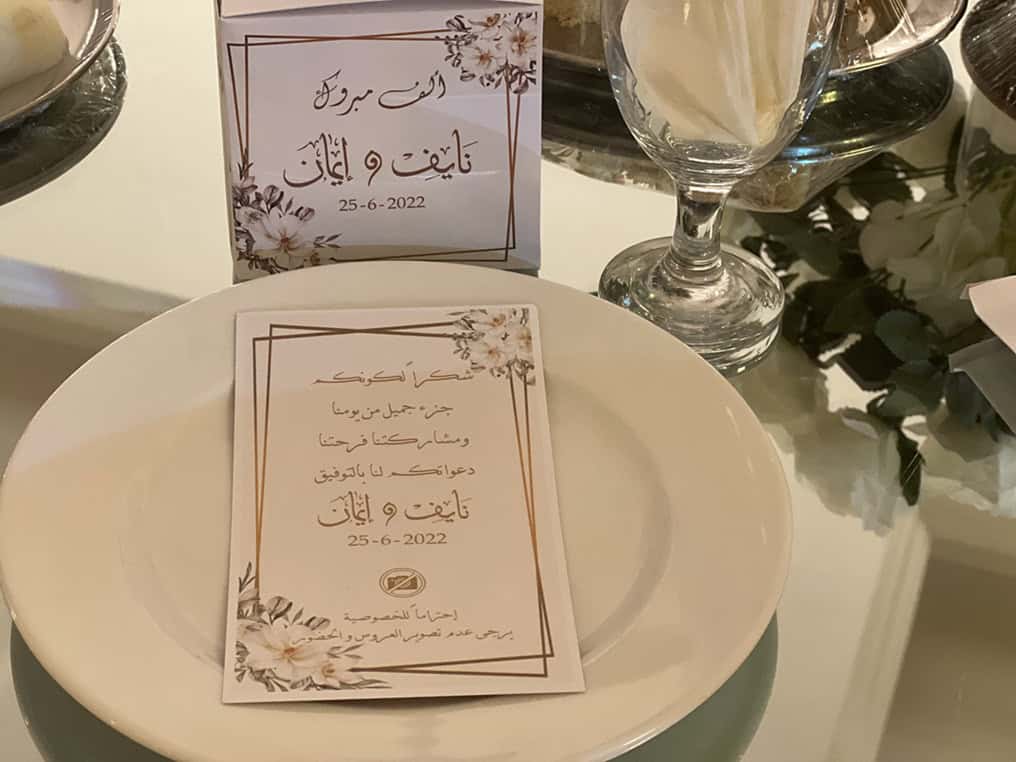 ألف مبروك
نَايِفْ و إيمَان
25-6-2022
شكراً لكونكم
جزء جميل من يومنا
ومشاركتنا فرحتنا
دعواتكم لنا بالتوفيق
نَايِفْ و إيمَان
25-6-2022
إحتراماً للخصوصية
يرجى عدم تصوير العروس والحضور